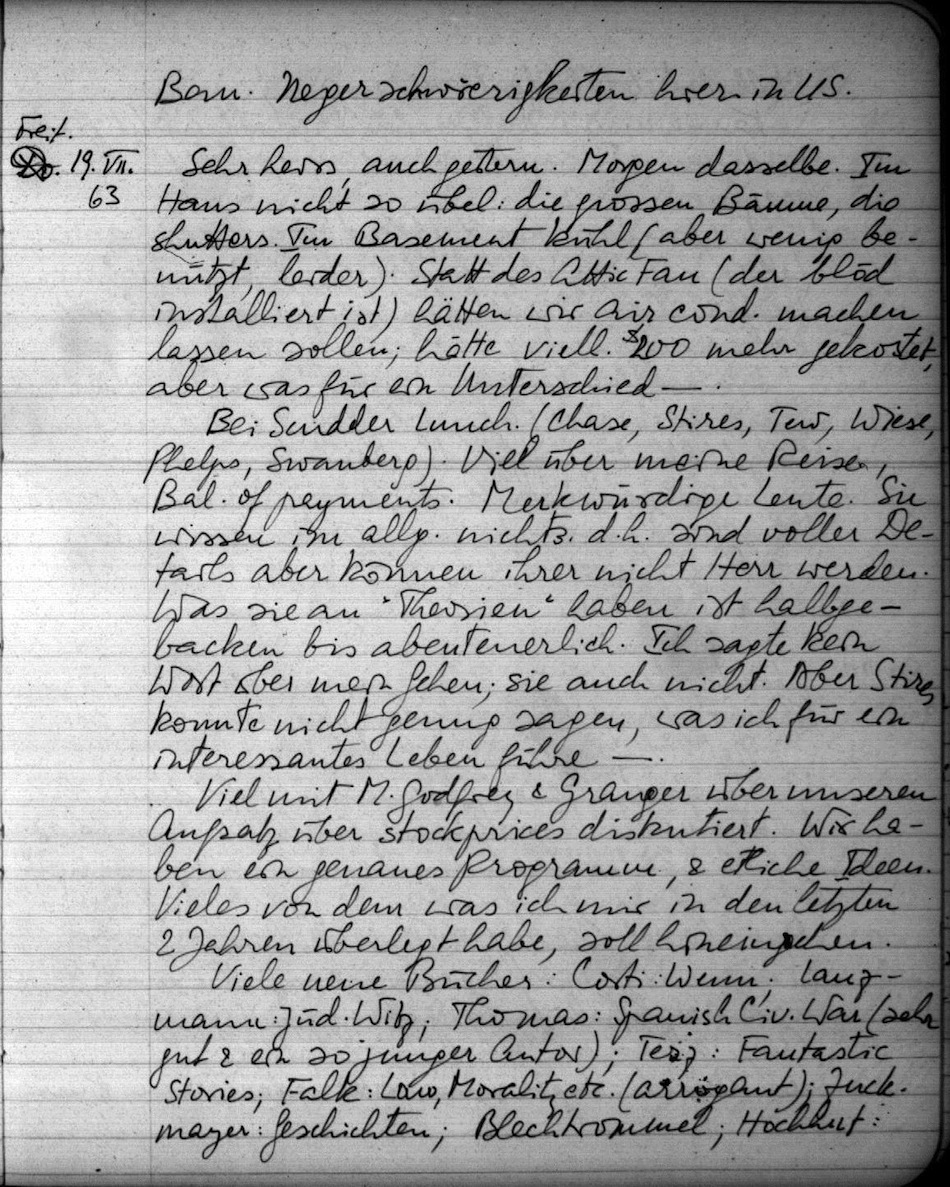 Bau. Negerschwierigkeiten hier in US.
Freit.
Do. 19. VII.
63
Sehr heiss, auch gestern. Morgen dasselbe. Im
Haus nicht so übel: die grossen Bäume, die
shutters. Im Basement kühl (aber wenig be-
nützt, leider). Statt des Attic Fan (der blöd
installiert ist) hätten wir air cond. machen
lassen sollen; hätte viell. $200 mehr gekostet,
aber was für ein Unterschied —.
Bei Scudder Lunch. (Chase, Stires, Tew, Wiese,
Phelps, Swanberg). Viel über meine Reise,
Bal. of payments. Merkwürdige Leute. Sie
wissen im allg. nichts. d.h. sind voller De-
tails aber können ihrer nicht Herr werden.
Was sie an "Theorien" haben ist halbge-
backen bis abenteuerlich. Ich sagte kein
Wort über mein Gehen; sie auch nicht. Aber Stires
konnte nicht genug sagen, was ich für ein
interessantes Leben führe —.
Viel mit M. Godfrey & Granger über unseren
Aufsatz über stockprices diskutiert. Wir ha-
ben ein genaues Programm, & etliche Ideen.
Vieles von dem was ich mir in den letzten
2 Jahren überlegt habe, soll hineingehen.
Viele neue Bücher: Corti: Wenn; Lanz-
mann: Jüd. Witz; Thomas: Spanish Civ. War (sehr
gut & ein so junger Autor); Terz: Fantastic
Stories; Falk: Law, Morality, etc. (arrogant); Zuck-
mayer: Geschichten; Blechtrommel; Hochhut: